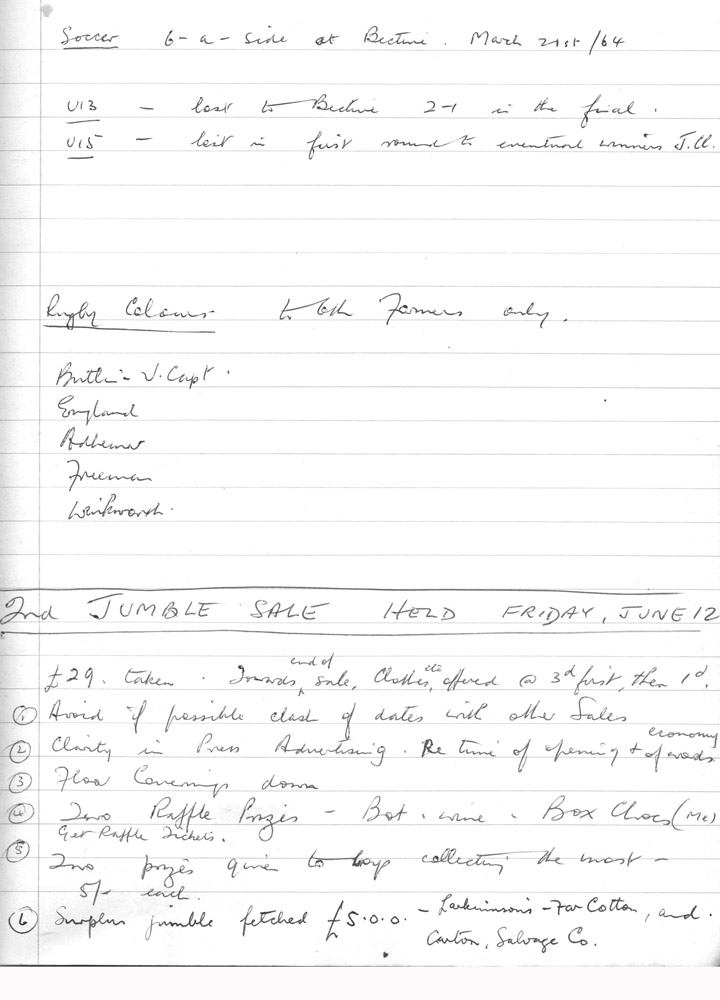 Soccer 6-a-side at Bective. March 21st/64
U13 - lost to Bective 2-1 in the final.
U15 - lost in first round to eventual winners J.Cl.
Rugby Colours to 6th Formers only.
Butlin - V. Capt.
England
Adhemar
Freeman
Winkworth.
2nd JUMBLE SALE HELD FRIDAY, JUNE 12
£29. taken. Towards end of sale, Clothes etc offered @ 3d first, then 1d.
① Avoid if possible clash of dates with other Sales
② Clarity in Press Advertising. Re time of opening + economy of words
③ Floor Coverings down
④ Two Raffle Prizes - Bot. wine. Box Chocs (Me)
Get Raffle Tickets.
⑤ Two prizes given to boys collecting the most -
5/- each.
⑥ Surplus jumble fetched £5.0.0. - Far Cotton, and
Salvage Co.